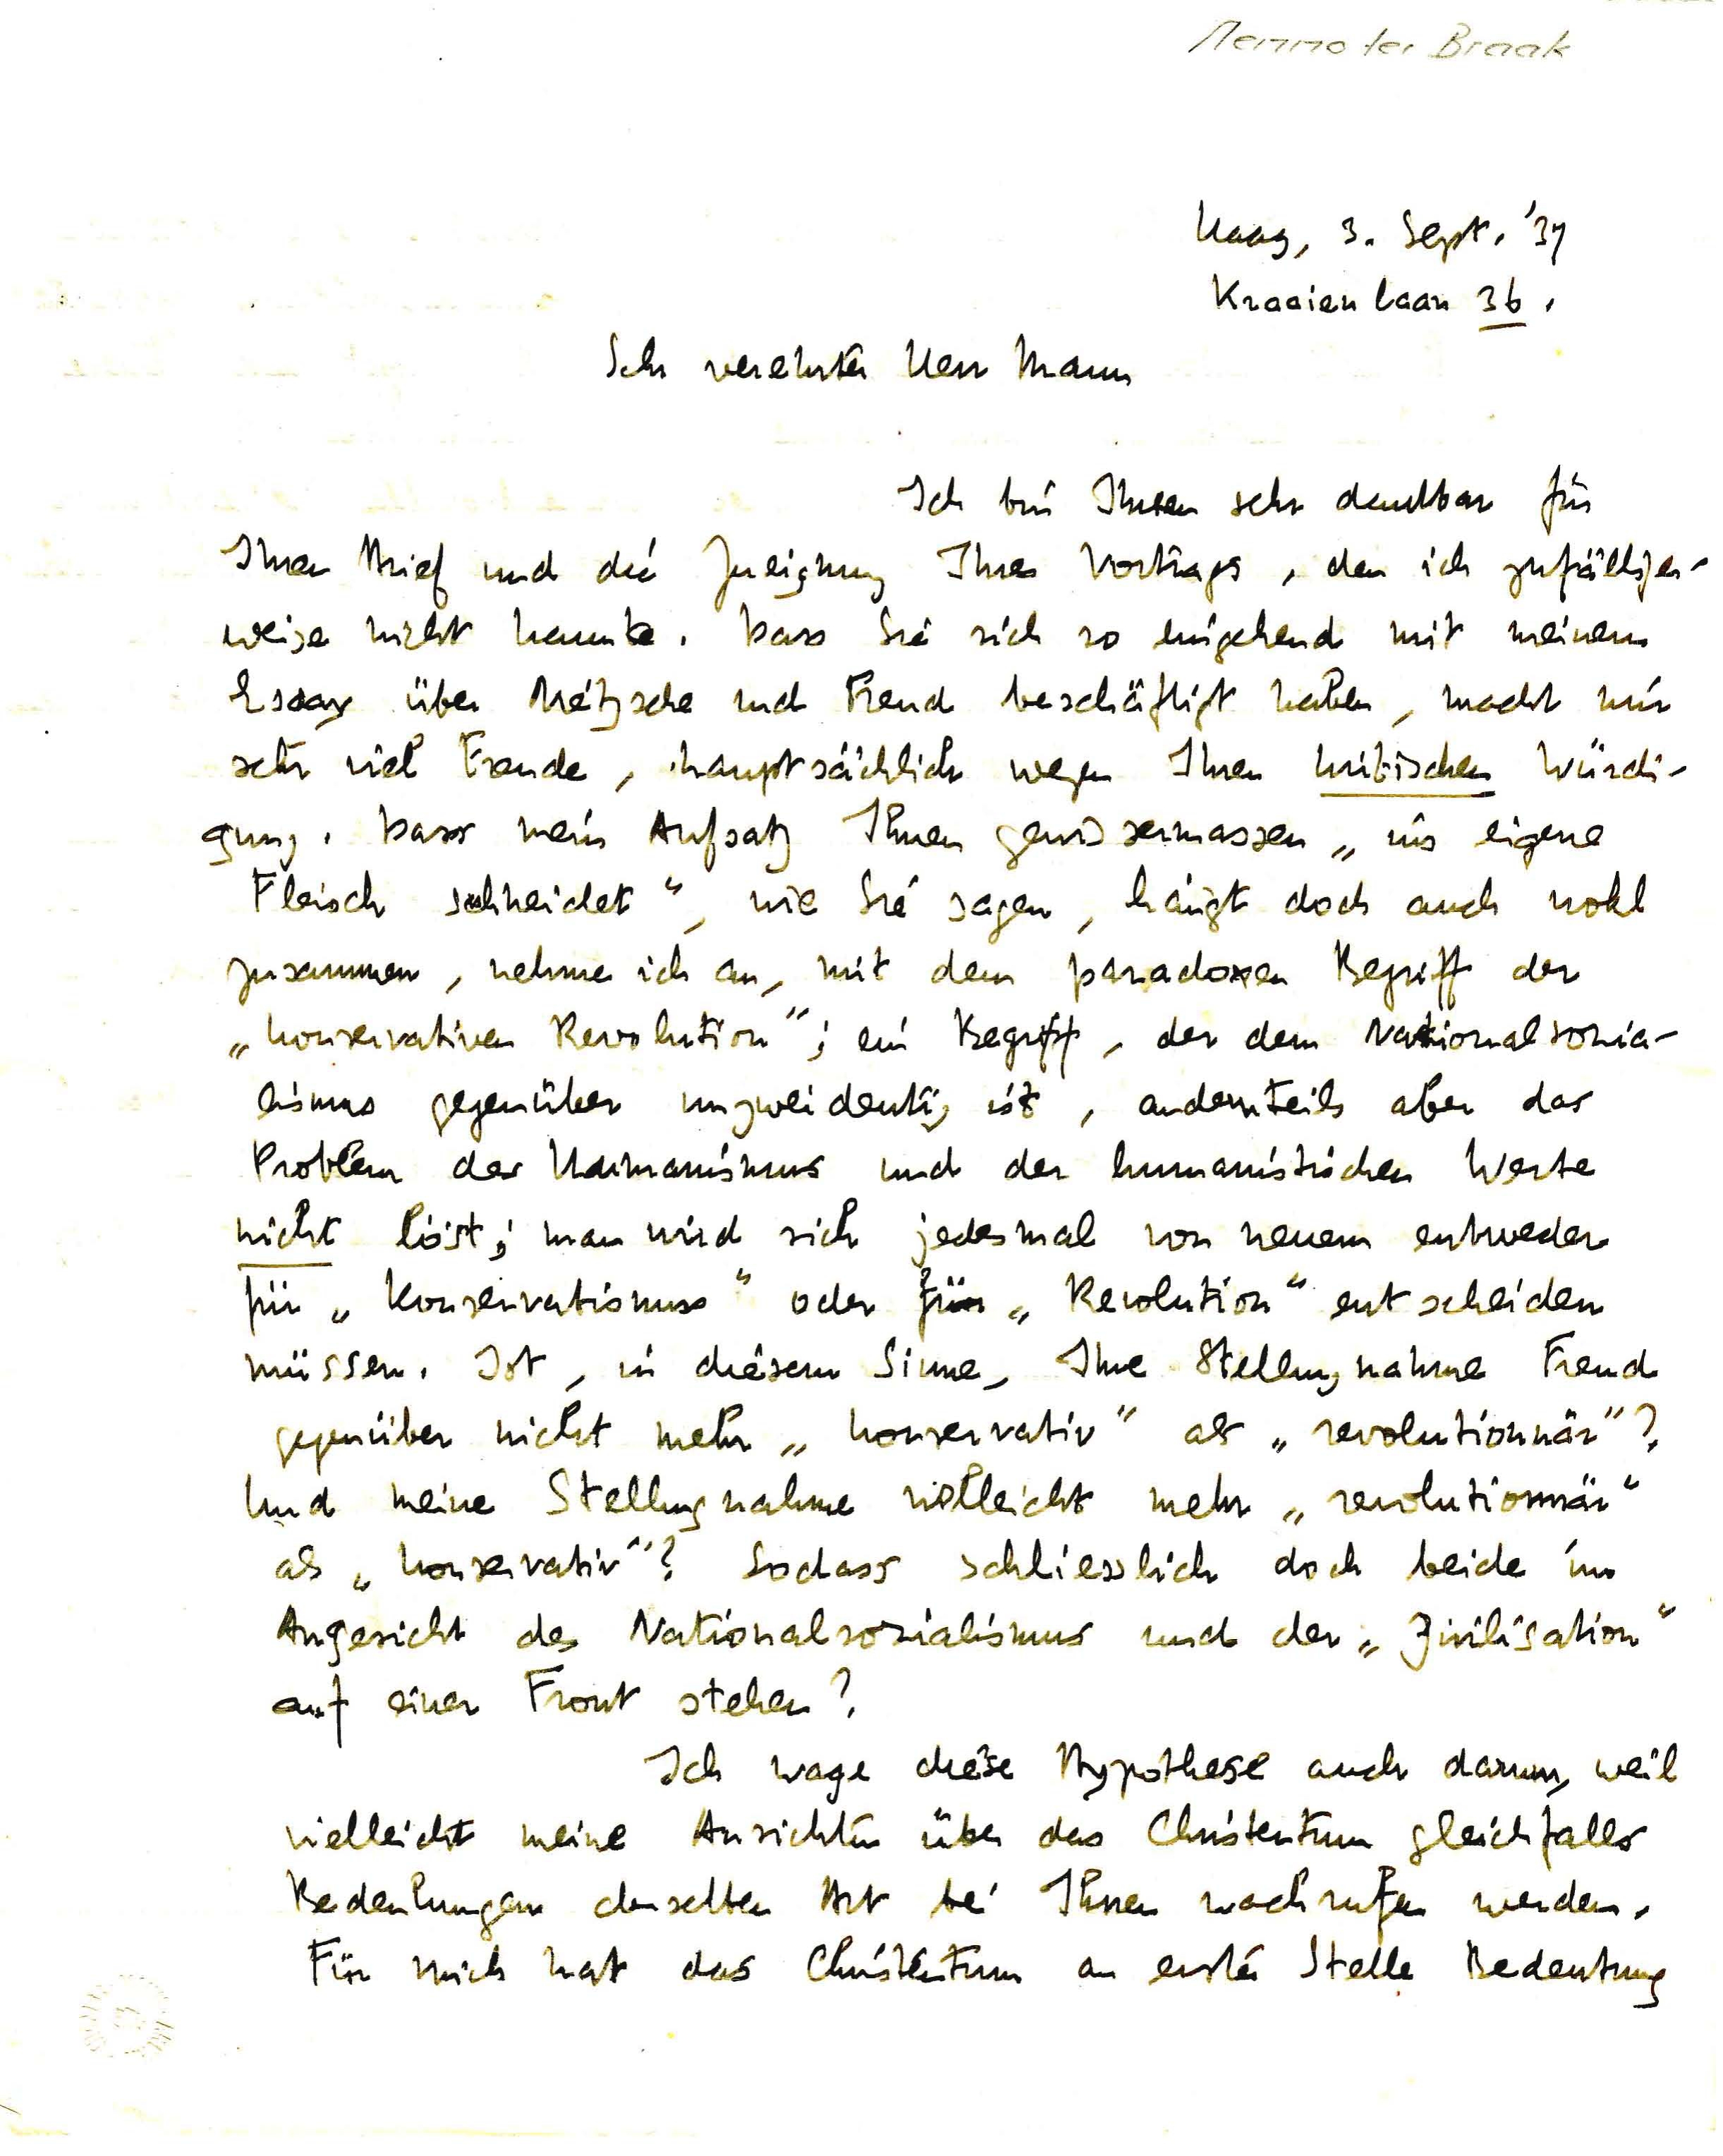 Menno ter Braak
Haag, 3. Sept. '37
Kraaienlaan 36.
Sehr verehrter Herr Mann
Ich bin Ihnen sehr dankbar für
Ihren Brief und die Zueignung Ihres Vortrags, den ich zufälliger-
weise nicht kannte. Dass Sie sich so eingehend mit meinem
Essay über Nietzsche und Freud beschäftigt haben, macht mir
sehr viel Freude, hauptsächlich wegen Ihrer kritischen Würdi-
gung. Dass mein Aufsatz Ihnen gewissermassen „ins eigene
Fleisch schneidet“, wie Sie sagen, hängt doch auch wohl
zusammen, nehme ich an, mit dem paradoxen Begriff der
„konservativen Revolution“; ein Begriff, der dem Nationalsozia-
lismus gegenüber unzweideutig ist, andernteils aber das
Problem des Humanismus und der humanistischen Werte
nicht löst; man wird sich jedesmal von neuem entweder
für „Konservatismus“ oder für „Revolution“ entscheiden
müssen. Ist, in diesem Sinne, Ihre Stellungnahme Freud
gegenüber nicht mehr „konservativ“ als „revolutionnär“?
Und meine Stellungnahme vielleicht mehr „revolutionnär“
als „konservativ“? Sodass schliesslich doch beide im
Angesicht des Nationalsozialismus und der „Zivilisation“
auf einer Front stehen?
Ich wage diese Hypothese auch darum, weil
vielleicht meine Ansichten über das Christentum gleichfalls
Bedenkungen derselben Art bei Ihnen wachrufen werden.
Für mich hat das Christentum an erster Stelle Bedeutung